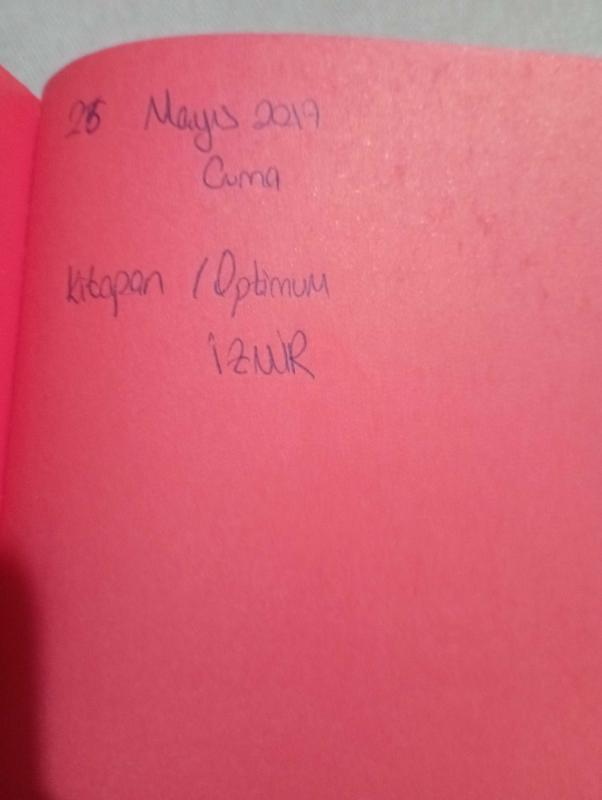 26 Mayıs 2017
Cuma
Kitapan / Optimum
İZMİR